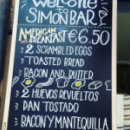 Welcome
SIMON BAR
AMERICAN
BREAKFAST €6.50
2 SCRAMBLED EGGS
TOASTED BREAD
BACON AND BUTTER
2 HUEVOS REVUELTOS
PAN TOSTADO
BACON Y MANTEQUILLA